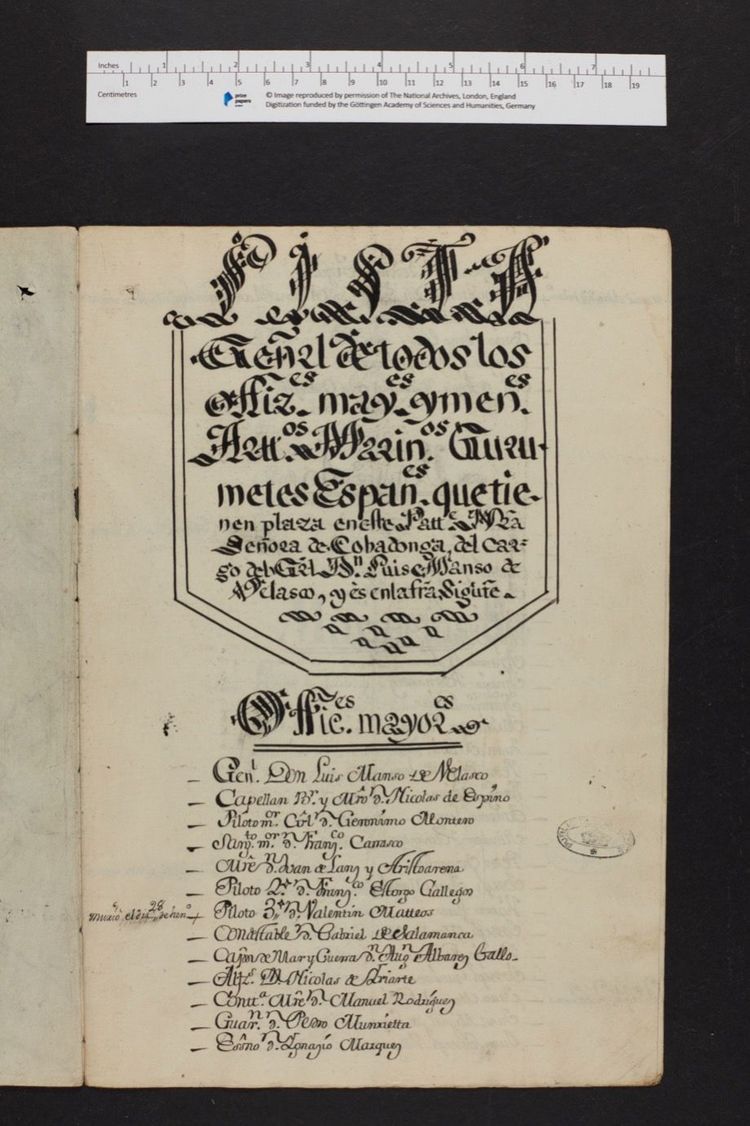 Inches 1 2 3 4 5 6 7
1 2 3 4 5 6 7 8 9 10 11 12 13 14 15 16 17 18 19
Centimetres
prize papers
© Image reproduced by permission of The National Archives, London, England
Digitization funded by the Göttingen Academy of Sciences and Humanities, Germany
LISTA
Gen̄rl de todos los
offiz.es may.es y men.es
Artt.os Marin.os Guru-
metes Españ.es que tie-
nen plaza en este Patt.e Nrã
Señora de Cobadonga, del car-
go del Grl Dn Luis Manso de
Velasco, y es en la frã Sigute.
Offic.es mayor.es
Gen.l Don Luis Manso de Velasco
Capellan Pr. y Mro dn. Nicolas de Espino
Piloto m.or Col dn. Geronimo Montero
Sarg.to m.or dn. Franz.co Carrasco
Mre dn. Juan de Lanz y Aristoarena
Piloto 2º dn. Franz.co Astorgo Gallegos
murio el dia 28 de hen.o
Piloto 3º dn. Valentin Matteos
Constable dn. Gabriel de Salamanca
Capn de Mar y Guerra dn. Aug.n Albarez Gallo
Alfz. Dn Nicolas de Iriarte
Contt.a Mre dn. Manuel Rodriguez
Guar.n dn. Pedro Munxietta
Essno dn. Ignazio Marquez